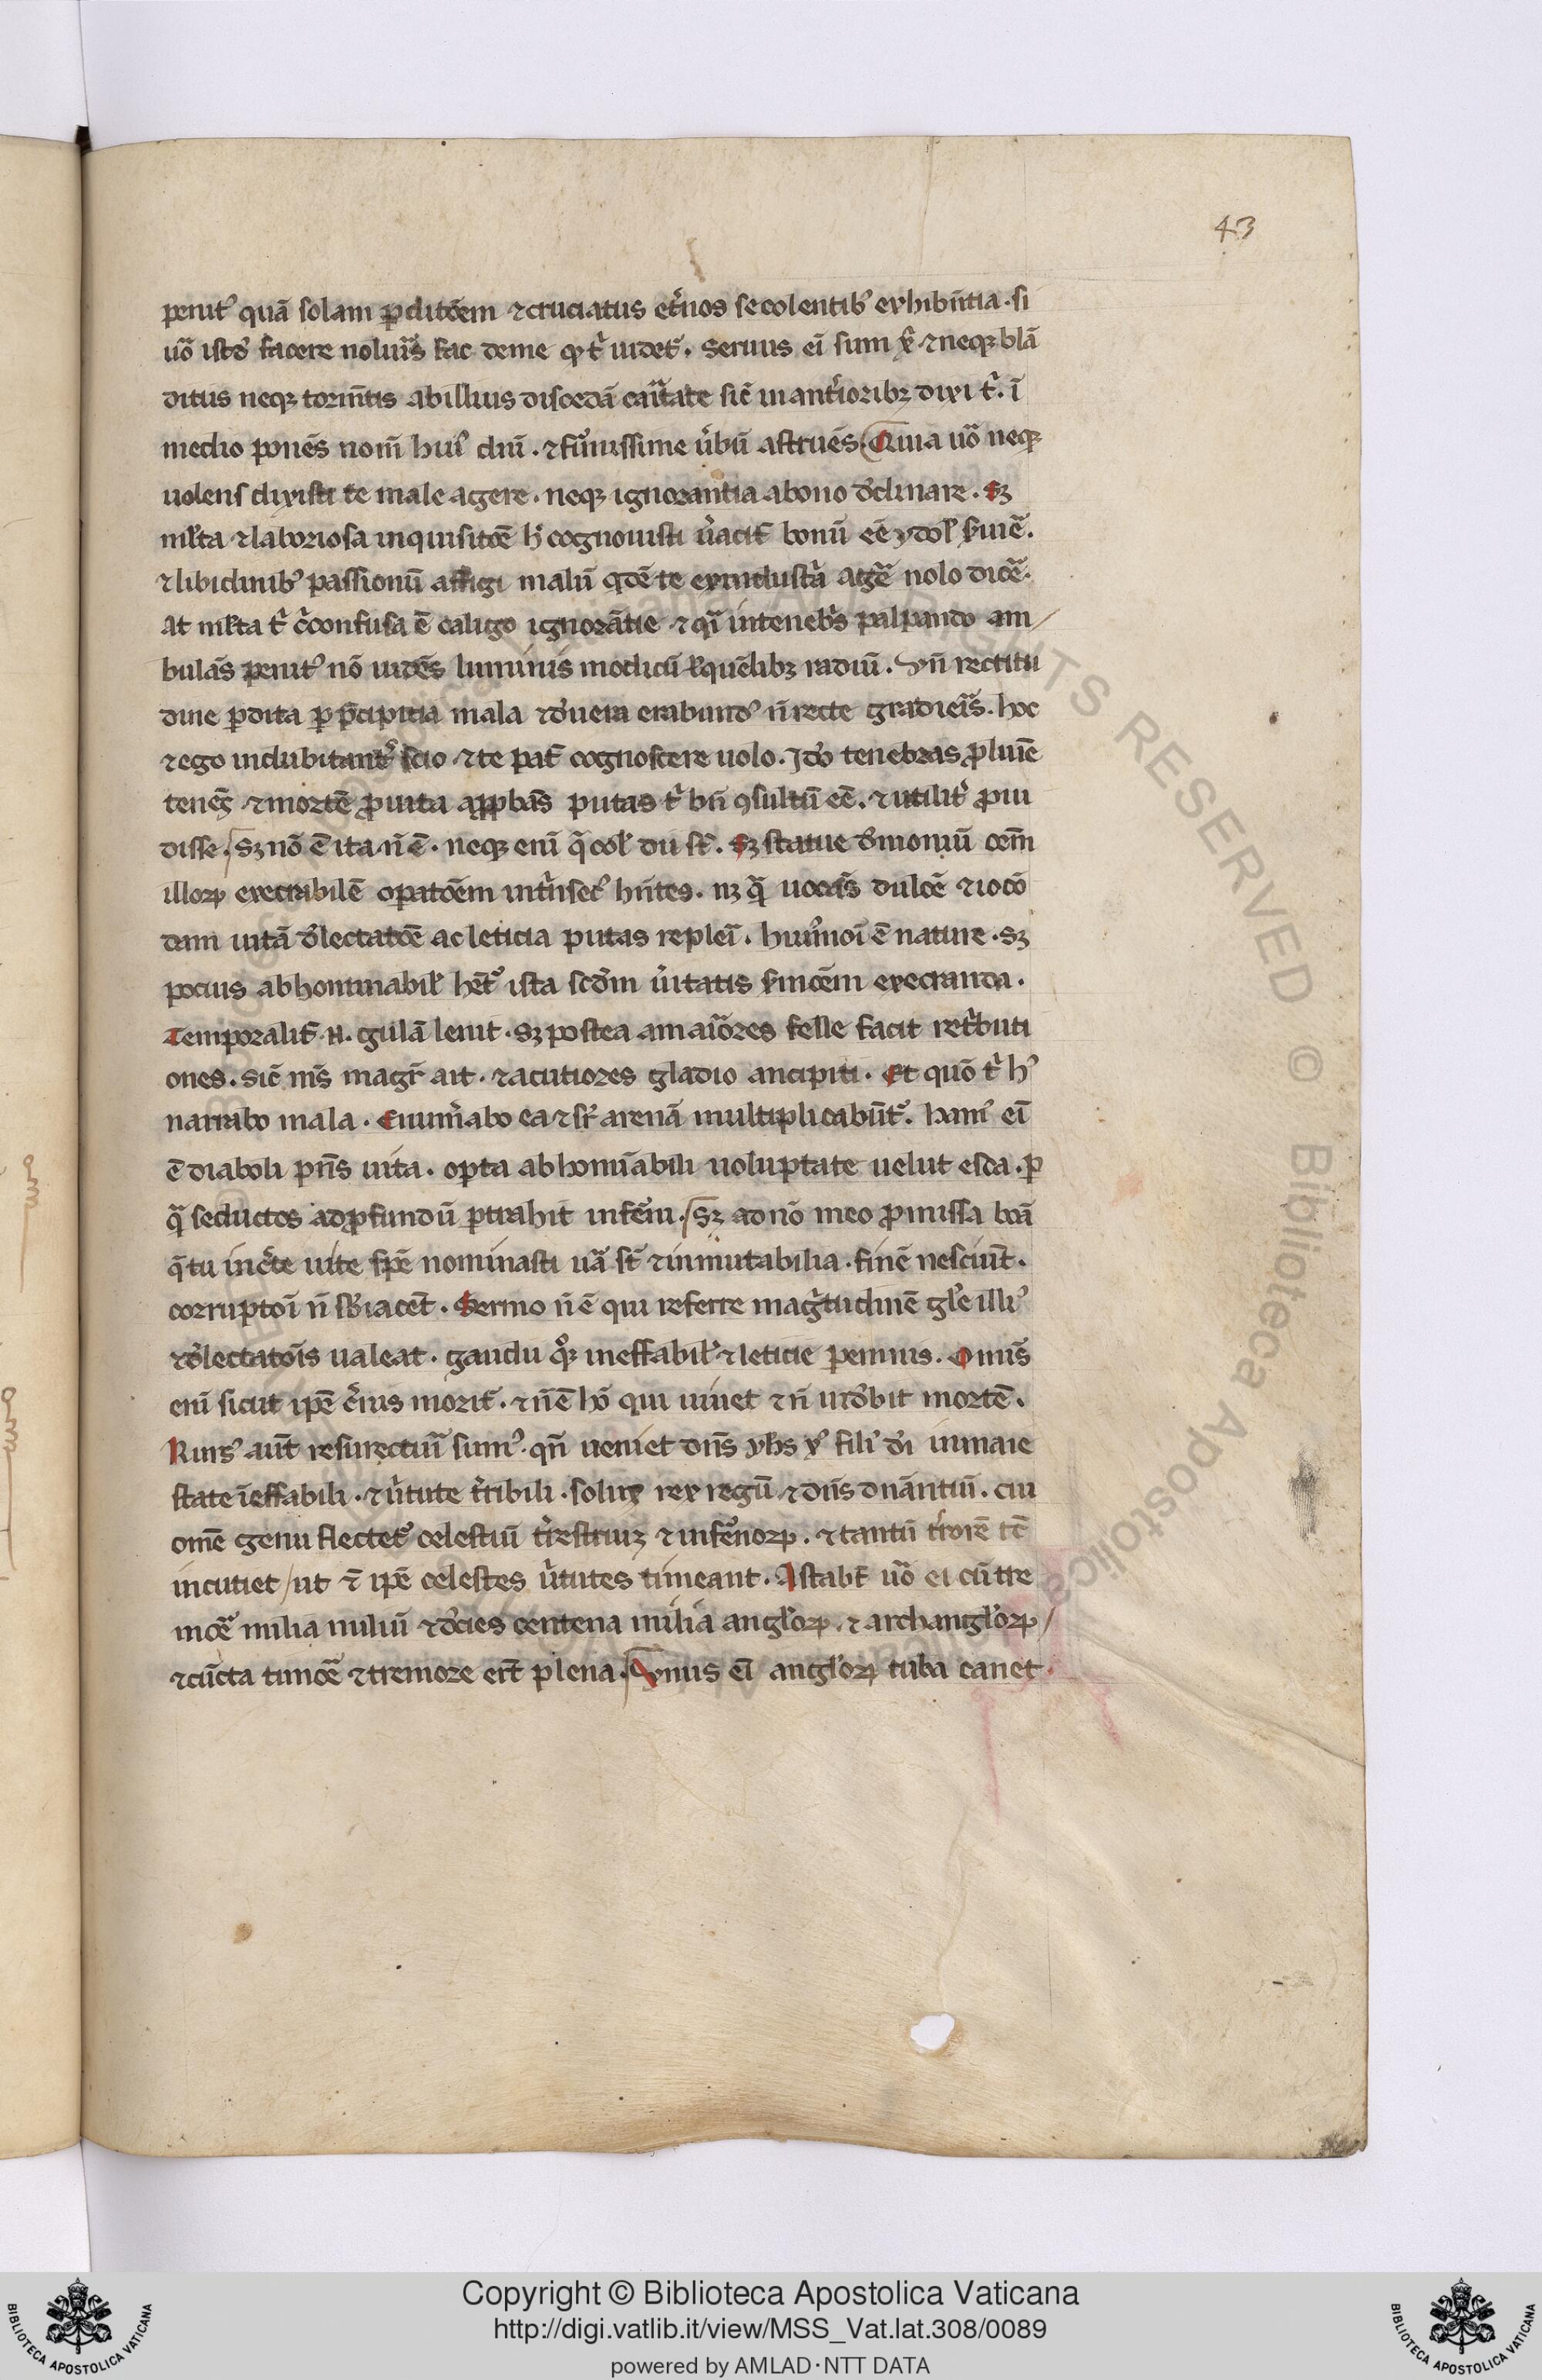 43
penitꝰ quā solam ꝑditōem ⁊ cruciatus et̾nos se colentibꝰ exhibētia · si
uō istđ facere noluīs fac de me qđ t̾ uidet̾. seruus eī sum xp̄i ⁊ neqꝫ blā
ditus neqꝫ tormētis ab illius discedā caritate sic̄ in ant̾ioribꝫ dixi t̾. ī
medio ponēs nom̄ huiꝰ dn̄i . ⁊ firmissime u̾bū astruēs. Quia uō neqꝫ
uolens dixisti te male agere. neqꝫ ignorantia a bono declinare. Sꝫ
ml̄ta ⁊ laboriosa inquisitōe h̄ cognouisti u̾acit̾ bonū eē ydol̄ s̾uire.
⁊ libidinibꝰ passionū affligi malū qđē te ex industria agē nolo dicē.
At ml̄ta t̾ c̾confusa ē caligo ignorātie ⁊ q̄i in tenebris palpando am
bulās penitꝰ nō uidēs luminis modicū l̄ quēlibꝫ radiū. Vn̄ rectitu
dine ꝑdita ꝑ p̄cipitia mala ⁊ deuera erabundꝰ n̄ recte gradieris. hoc
⁊ ego indubitanter scio ⁊ te pat̾ cognoscere uolo. Ido tenebras ꝓ lumīe
tenēs ⁊ mortē ꝓ uita approbās putas t̾ bn̄ ꝯsultū eē. ⁊ utilit̾ ꝓui
disse. Sꝫ nō ē ita n̄ ē. neqꝫ enī q̄ col̄ dii st̄. Sꝫ statue demoniū oēm
illorꝝ execrabilē oꝑatōem intrinsecꝰ hn̄tes. nꝫ q̄ uocās dulcē ⁊ iocō
dam uitā delectatōe ac leticia putas repleī. huiꝰmoi ē nature. Sꝫ
pocius abhominabil̄ hēt̄ ista scđm u̾itatis s̾mōem execranda.
Temporalit̾ .n. gulā lenit. Sꝫ postea amariores felle facit ret̾buti
ones. sic̄ ms̄ magr̄ ait. ⁊ acutiores gladio ancipiti. Et quō t̾ hꝰ
narrabo mala. Enum̾abo ea ⁊ sr̄ arenā multiplicabūt̾. hamꝰ eī
ē diaboli pn̄s uita. opta abhomīabili uoluptate uelut esca. ꝑ
q̄ seductos ad ꝓfundū ꝑtrahit infernī. Sꝫ ad nō meo ꝓmissa boā
q̄ tu inc̾te uite spē nominasti uā st̄ ⁊ inmutabilia. finē nesciūt.
corruptoī n̄ sb̄iacēt. Sermo n̄ ē qui referre magnitudinē glē illiꝰ
⁊ delectatōis ualeat. gaudii qꝫ ineffabil̄ ⁊ leticie perennis. Omīs
enī sicut ipē c̾nis morit̾. ⁊ n̄ ē hō qui uiuet ⁊ n̄ uidebit mortē.
Rursꝰ aūt resurrecturi sumꝰ. qn̄ ueniet dn̄s yhs xp̄ filiꝰ dei in maie
state īeffabili. ⁊ u̾tute t̾ribili. solus rex regū ⁊ dn̄s dn̄antiū. cui
omē genu flectet̾ celestiū t̾restriuꝫ ⁊ infernorꝝ. ⁊ tantū t̾rorē tc̄
incutiet / ut ⁊ ipē celestes u̾tutes timeant. Astabūt uō ei cū tre
mōē milia miliū ⁊ decies centena milia angl̄orꝝ ⁊ archangl̄orꝝ /
⁊ cūcta timōē ⁊ tremore erūt plena. Vnus eī angl̄orꝝ tuba canet.
Copyright © Biblioteca Apostolica Vaticana
http://digi.vatlib.it/view/MSS_Vat.lat.308/0089
powered by AMLAD·NTT DATA